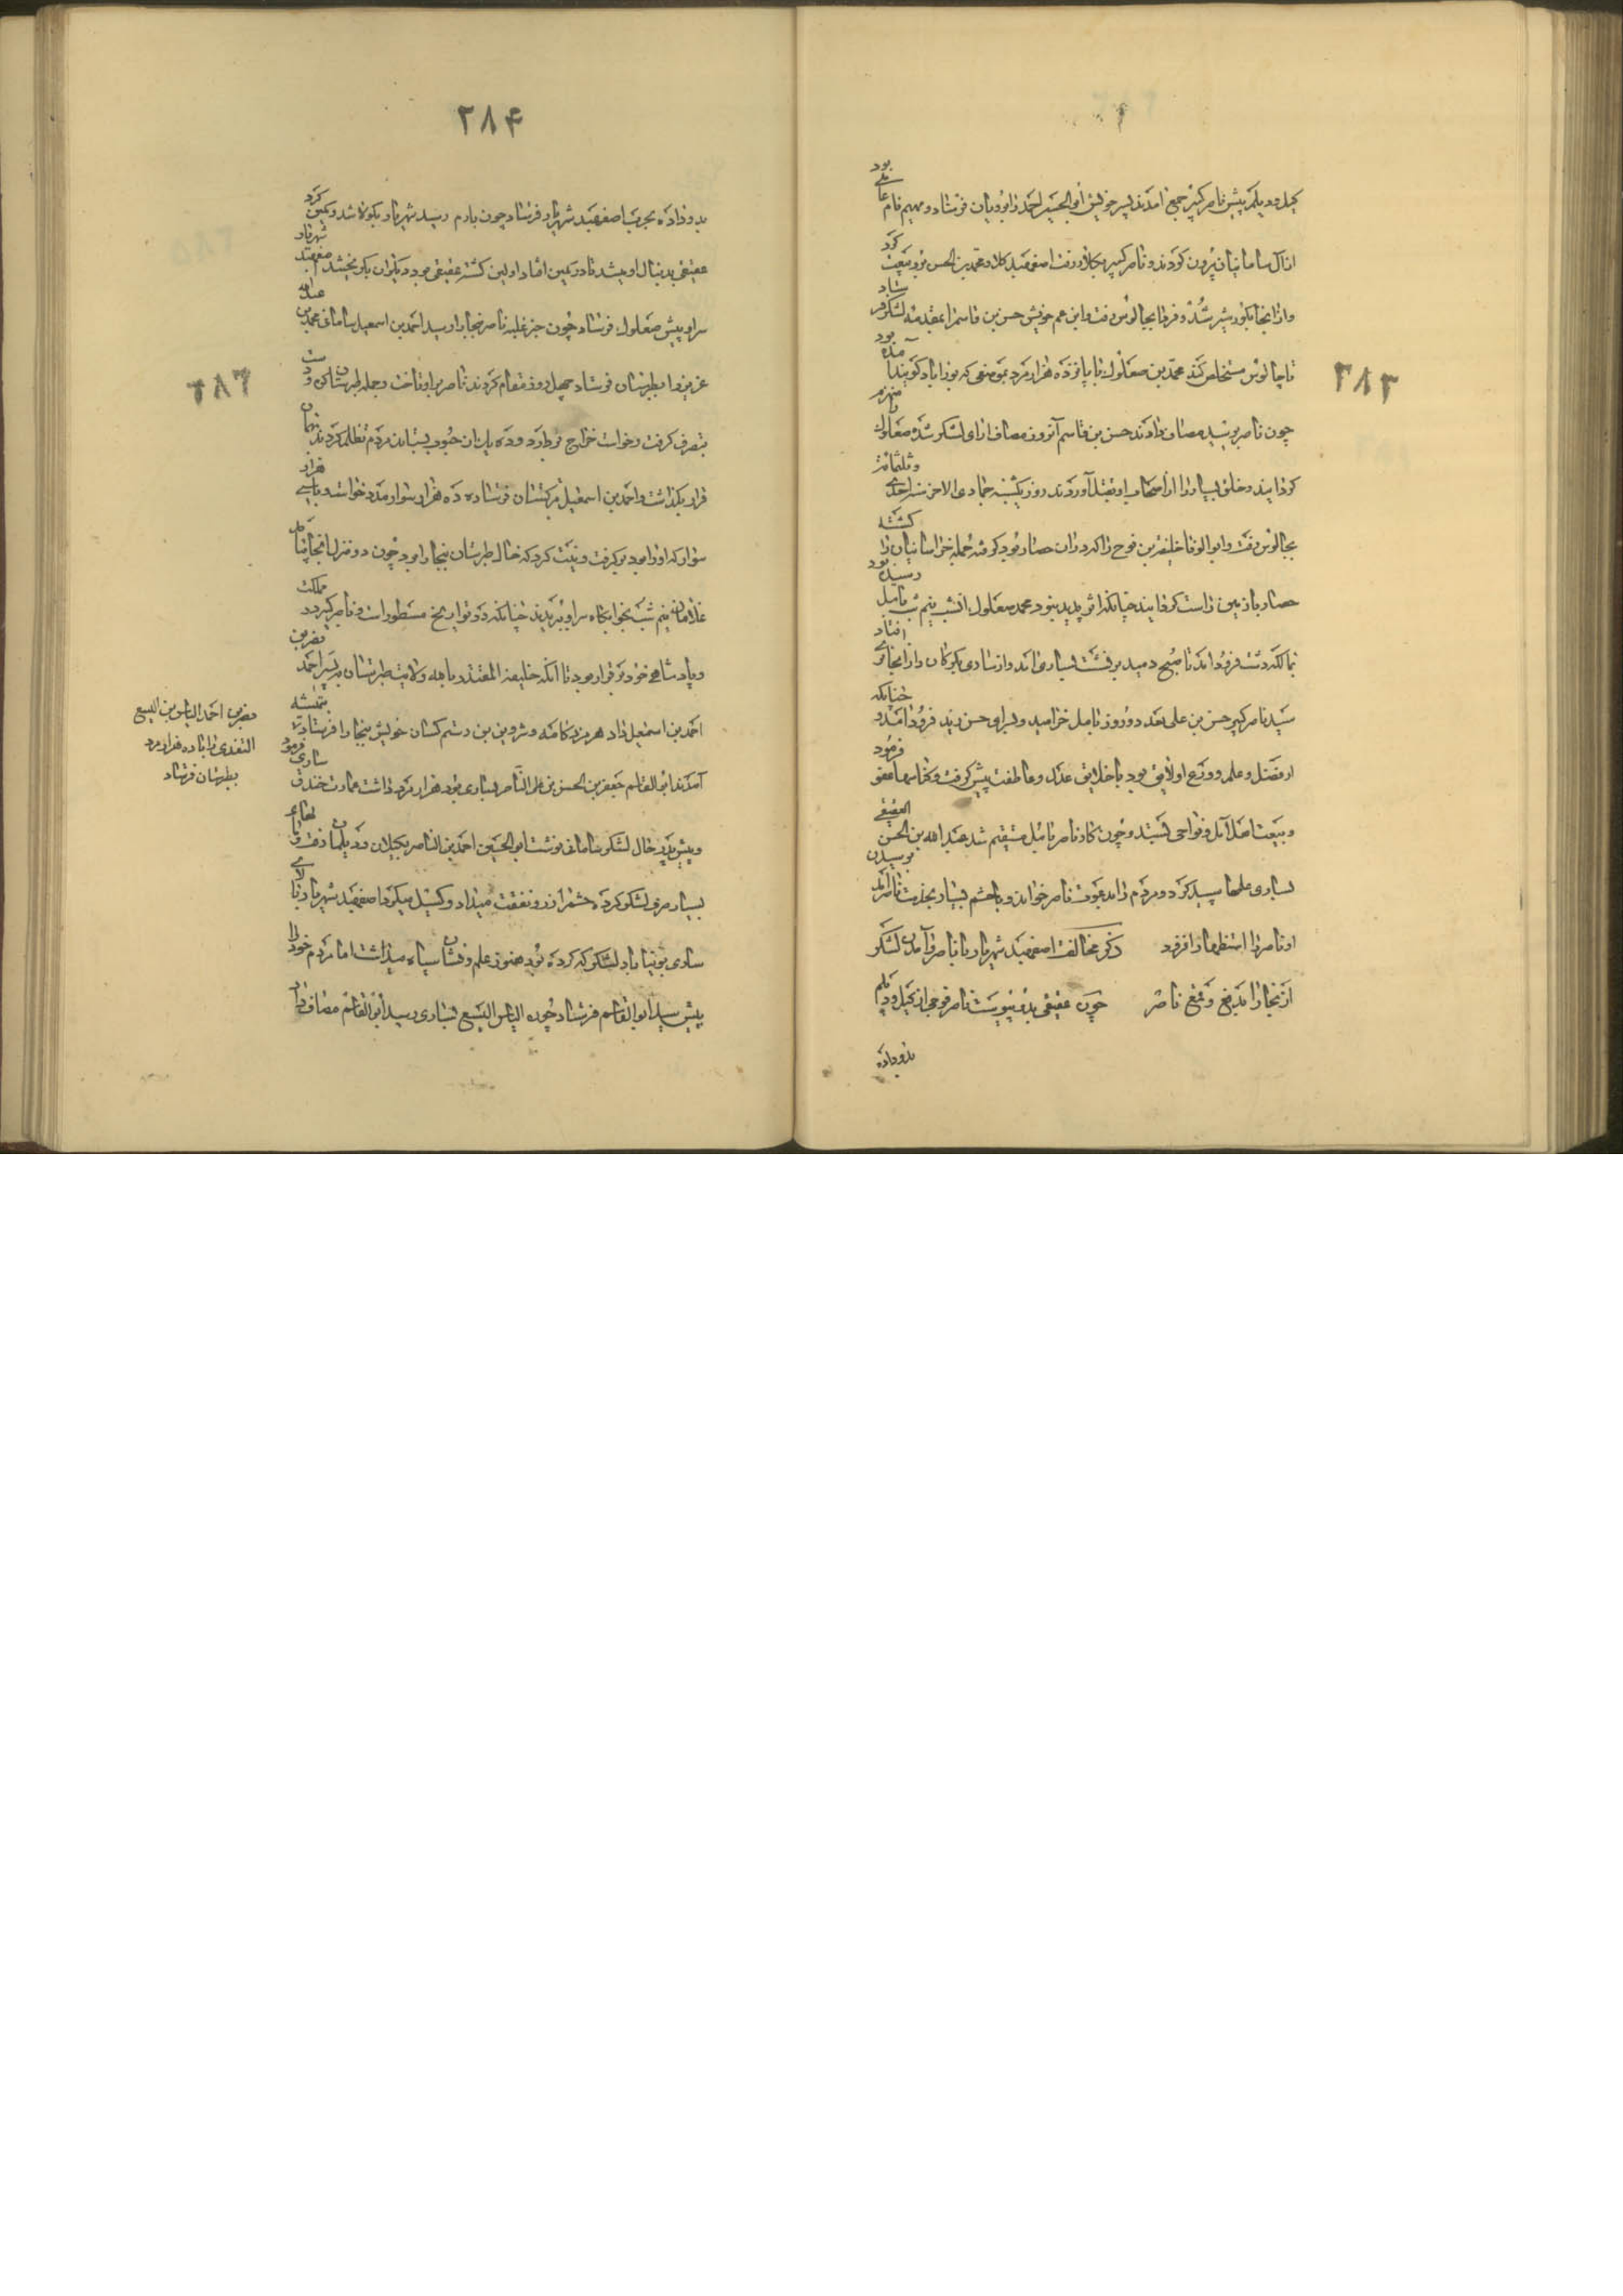 ۳۸۳
گیل و دیلم پیش ناصر کبیر جمع آمدند پسر خویش ابوالحسین احمد را برویان فرستاد و مهیم نام عاملی بود
از آل سامانیان بیرون کردند و ناصر کبیر بکلار رفت اصفهبد کلار محمد بن الحسن برو بیعت کرد
و از آنجا بکورشیرد شد و فردا بچالوس رفت و ابن عم خویش حسن بن قاسم را بمقدمه لشکر فرستاد
تا چالوس مستخلص کند محمد بن صعلوک با پانزده هزار مرد بموضعی که بورآباد گویند آمده بود
چون ناصر برسید مصاف دادند حسن بن قاسم آنروز مصاف آرای لشکر شده صعلوک را منهزم
گردانید و خلق بسیار را از اصحاب او بقتل آوردند روز یکشنبه جمادی الاخر سنه احدی و ثلثمائة
بچالوس رفت و ابوالوفا خلیفة بن نوح را که در آن حصار بود گرفته جمله خراسانیان را کشته
حصار با زمین راست گردانید چنانکه اثر پدید نبود محمد صعلوک آنشب نیم شب بآمل رسیده بود
بمالکه دشت فرود آمد تا صبح دمید برنشست بساری آمد و از ساری بگرگان و از آنجا بری افتاد
سید ناصر کبیر حسن بن علی بعد دو روز بآمل خرامید و بسرای حسن زید فرود آمد و چنانکه
از فضل و علم و ورع او لایق بود با خلایق عدل و عاطفت پیش گرفت و گناهها عفو فرمود
و بیعت اهل آمل و نواحی بستد و چون کار ناصر بآمل مستقیم شد عبد الله بن الحسن العقیقی
بساری علمها سپید کرد و مردم را بدعوت ناصر خواند و با حشم بسیار بخدمت ناصر آمد برسیدن
او ناصر را استظهار افزود ذکر مخالفت اصفهبد شهریار با ناصر و آمدن لشکر
از بخارا بدفع و قمع ناصر چون عقیقی بدو پیوست ناصر فوجی از گیل و دیلم
بدو داده
۳۸۴
بدو داده بحرب اصفهبد شهریار فرستاد چون بارم رسید شهریار بکولا شد و کمین کرد
عقیقی بدنبال او میشد تا در کمین افتاد اولین کشته عقیقی بود و دیگران بگریختند اصفهبد شهریار
سر او پیش صعلوک فرستاد چون خبر غلبه ناصر ببخارا رسید احمد بن اسمعیل سامانی محمد بن عبد الله
عزیز را بطبرستان فرستاد چهل روز مقام کردند ناصر برو تاخت و جمله طبرستان
بتصرف گرفت و خواست خراج بردارد و ده یک از آن حبوب بستاند مردم تظلم کردند
قرار بگذاشت و احمد بن اسمعیل بترکستان فرستاده ده هزار سوار مدد خواست و با سی هزار
سوار که او را بود برگرفت و نیت کرد که خاک طبرستان ببخارا برد چون دو منزل آنجا بیامد
غلامان نیم شب بخوابگاه سر او ببریدند چنانکه در تواریخ مسطور است و ناصر کبیر در مملکت
و پادشاهی خود برقرار بود تا آنکه خلیفه المقتدر بالله ولایت طبرستان به پسر احمد نصر بن
احمد بن اسمعیل داد هرمزد کامه و شروین بن رستم کسان خویش ببخارا فرستاد بتمیشه
آمدند ابوالقاسم جعفر بن الحسن بن علی الناصر بساری بود هزار مرد داشت عمارت خندق ساری فرمود
و پیش پدر حال لشکر سامانی نوشت ابوالحسین احمد بن الناصر بگیلان و دیلمان رفت و با
بسیار مری لشکر کرد و حشم را زر و نفقت میداد و گسیل میکرد اصفهبد شهریار
ساری بونیاباد لشکرگه کرده بود هنوز علم و نشان سیاه میداشت اما مردم خود را
پیش سید ابوالقاسم فرستاد چون الیاس الیسع بساری رسید ابوالقاسم مصاف داد
۳۸۶
نصر بن احمد الیاس بن الیسع
السغدی را با ده هزار مرد
بطبرستان فرستاد